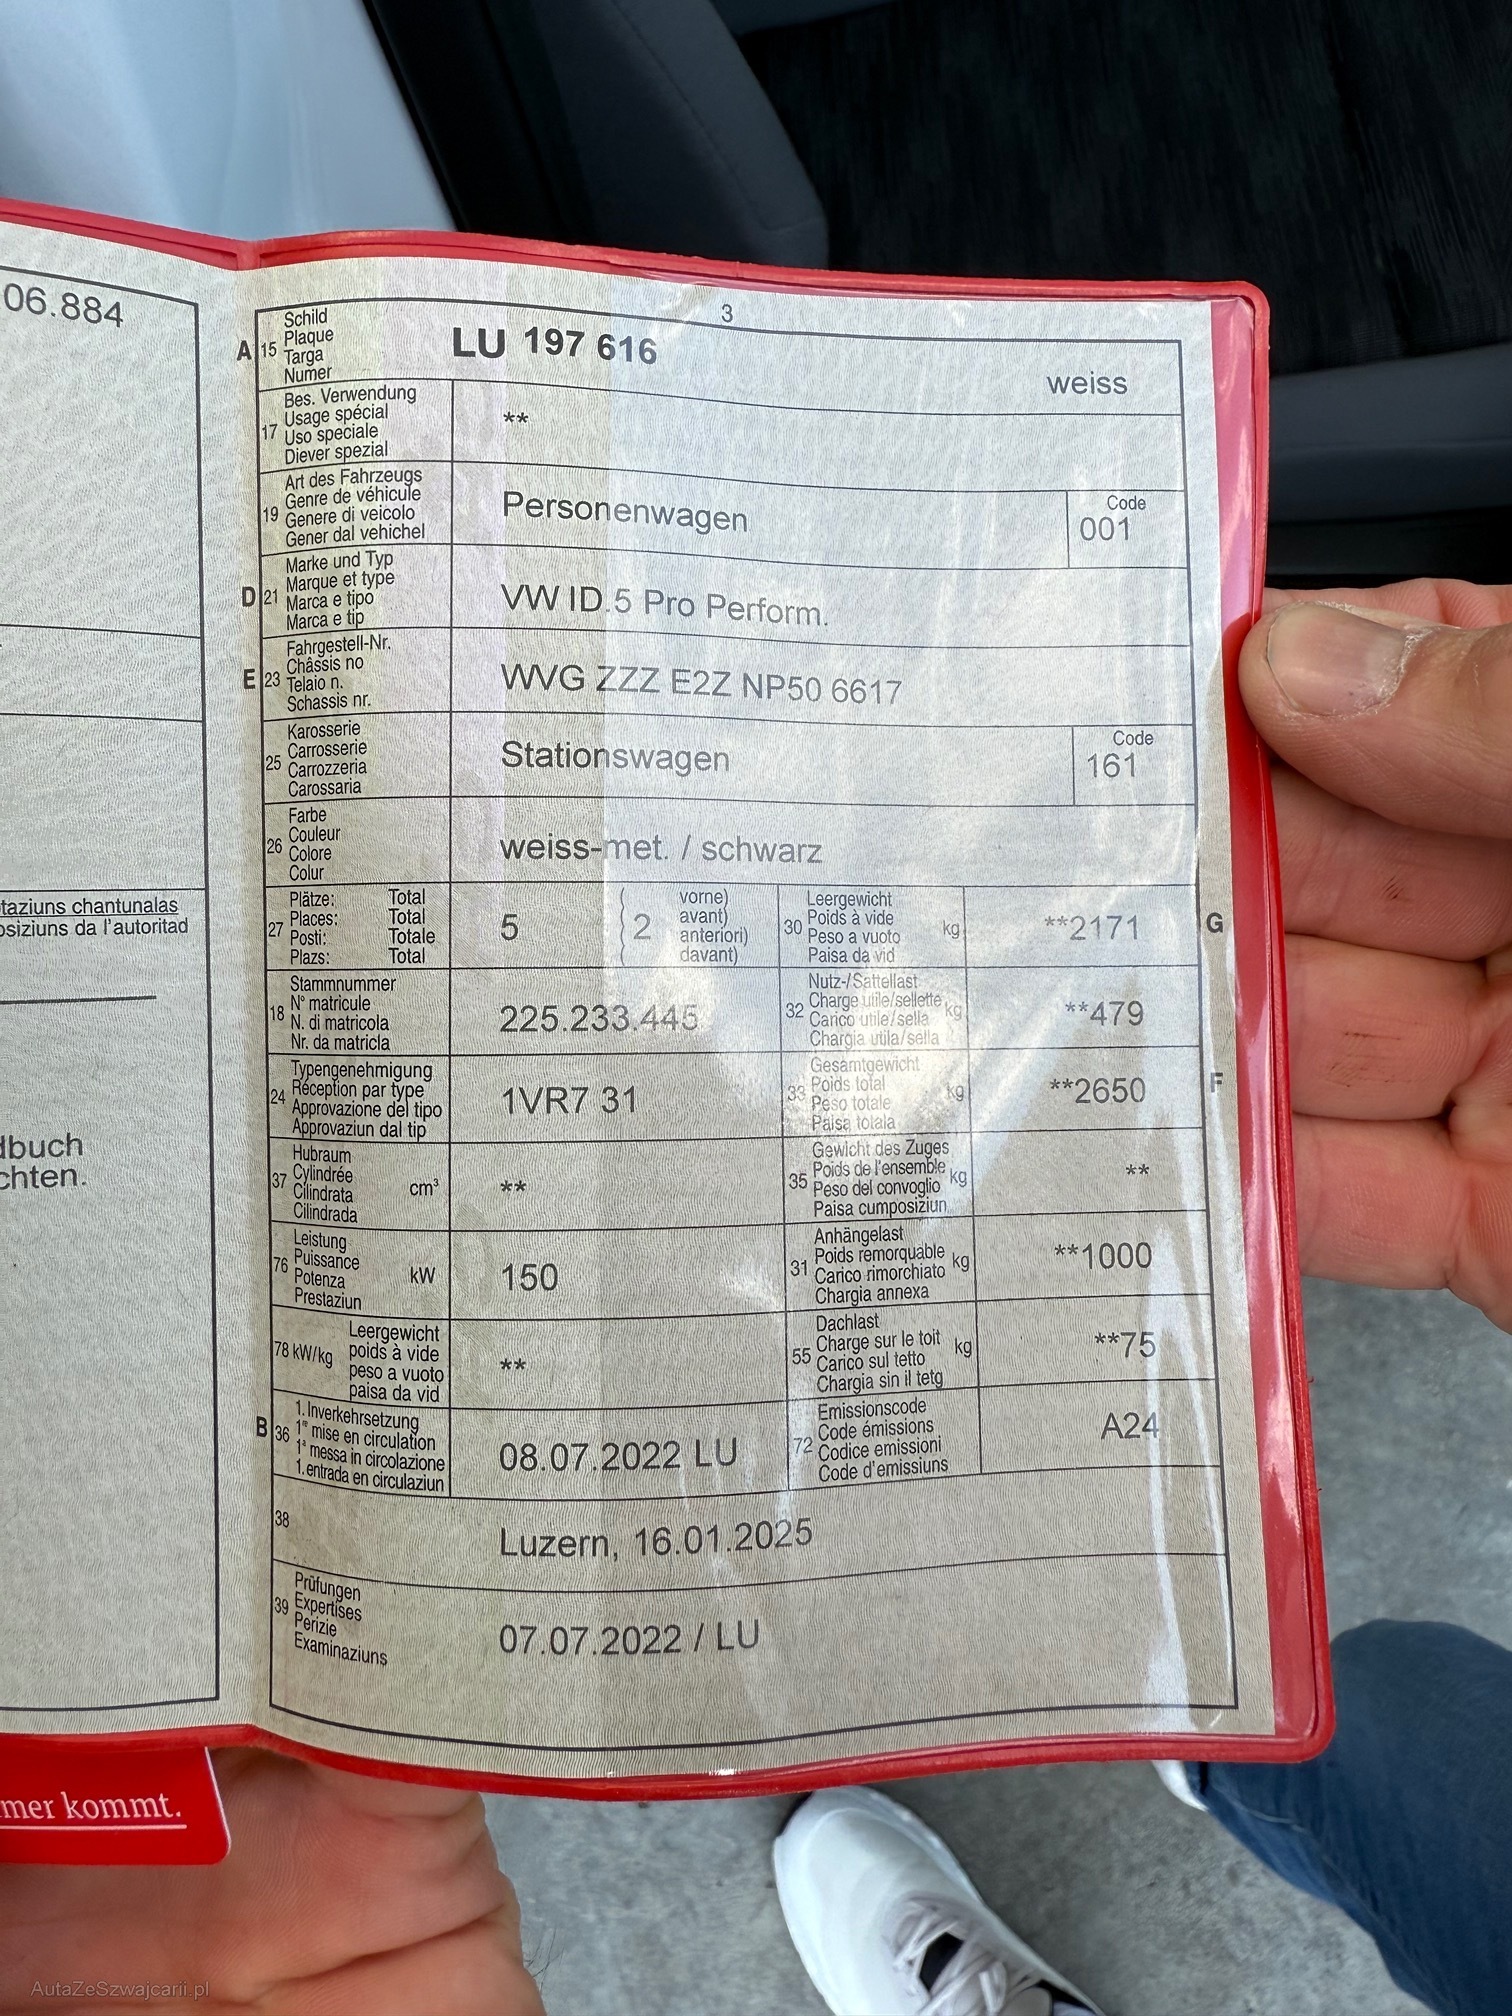 06.884
taziuns chantunalas
osiziuns da l'autoritad
dbuch
chten.
mer kommt.
3
A 15 Schild
Plaque
Targa
Numer
LU 197 616
weiss
17 Bes. Verwendung
Usage spécial
Uso speciale
Diever spezial
**
19 Art des Fahrzeugs
Genre de véhicule
Genere di veicolo
Gener dal vehichel
Personenwagen
Code
001
D 21 Marke und Typ
Marque et type
Marca e tipo
Marca e tip
VW ID.5 Pro Perform.
E 23 Fahrgestell-Nr.
Châssis no
Telaio n.
Schassis nr.
WVG ZZZ E2Z NP50 6617
25 Karosserie
Carrosserie
Carrozzeria
Carossaria
Stationswagen
Code
161
26 Farbe
Couleur
Colore
Colur
weiss-met. / schwarz
27 Plätze: Total
Places: Total
Posti: Totale
Plazs: Total
5
( 2 vorne)
avant)
anteriori)
davant)
30 Leergewicht
Poids à vide
Peso a vuoto
Paisa da vid
kg
**2171
G
18 Stammnummer
N° matricule
N. di matricola
Nr. da matricla
225.233.445
32 Nutz-/Sattellast
Charge utile/sellette
Carico utile/sella
Chargia utila/sella
kg
**479
24 Typengenehmigung
Réception par type
Approvazione del tipo
Approvaziun dal tip
1VR7 31
33 Gesamtgewicht
Poids total
Peso totale
Paisa totala
kg
**2650
F
37 Hubraum
Cylindrée
Cilindrata
Cilindrada
cm³
**
35 Gewicht des Zuges
Poids de l'ensemble
Peso del convoglio
Paisa cumposiziun
kg
**
76 Leistung
Puissance
Potenza
Prestaziun
kW
150
31 Anhängelast
Poids remorquable
Carico rimorchiato
Chargia annexa
kg
**1000
78 kW/kg Leergewicht
poids à vide
peso a vuoto
paisa da vid
**
55 Dachlast
Charge sur le toit
Carico sul tetto
Chargia sin il tetg
kg
**75
B 36 1. Inverkehrsetzung
1re mise en circulation
1a messa in circolazione
1. entrada en circulaziun
08.07.2022 LU
72 Emissionscode
Code émissions
Codice emissioni
Code d'emissiuns
A24
38
Luzern, 16.01.2025
39 Prüfungen
Expertises
Perizie
Examinaziuns
07.07.2022 / LU
AutaZeSzwajcarii.pl